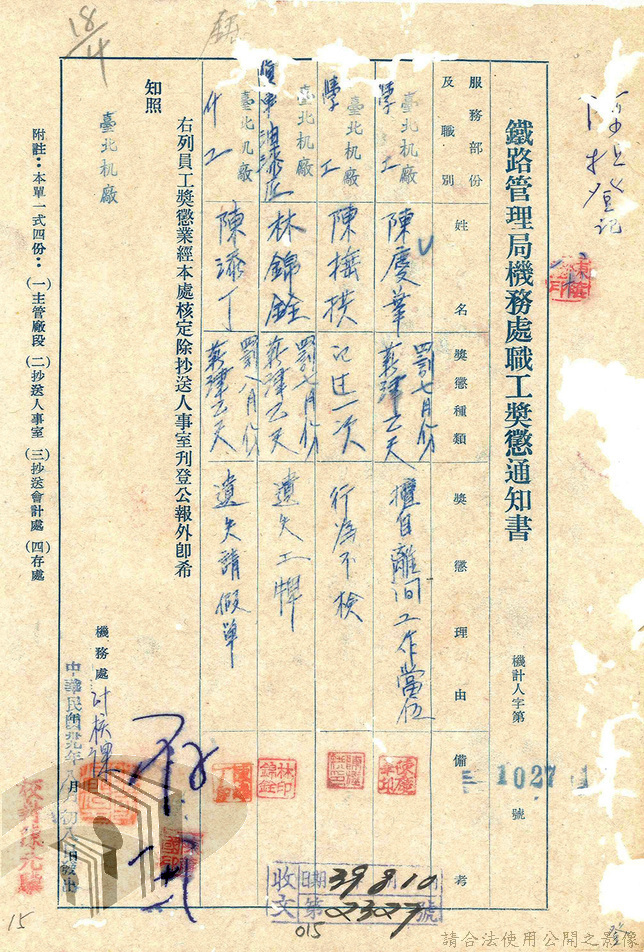 鐵路管理局機務處職工獎懲通知書
機計人字第
1027
號
服務部份及職別
姓名
獎懲種類
獎懲理由
備考
臺北机廠
學工
陳慶華
罰七月份薪津乙天
擅自離開工作崗位
臺北机廠
學工
記过一次
行為不檢
陳
臺北机廠
油漆匠
林錦銓
罰七月份薪津乙天
遺失工牌
林錦銓印
臺北机廠
什工
陳添丁
罰八月份薪津乙天
遺失請假單
右列員工獎懲業經本處核定除抄送人事室刊登公報外即希
知照
臺北机廠
機務處
計核課
中華民國卅九年八月初八日發出
附註：本單一式四份：(一)主管廠段 (二)抄送人事室 (三)抄送會計處 (四)存處
收文
日期 39.8.10
第2327號
015
18/4
15
登記
請合法使用公開之影像